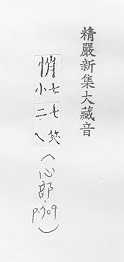 精嚴新集大藏音
悄
七七悠
小二乀
(心部, p.709)